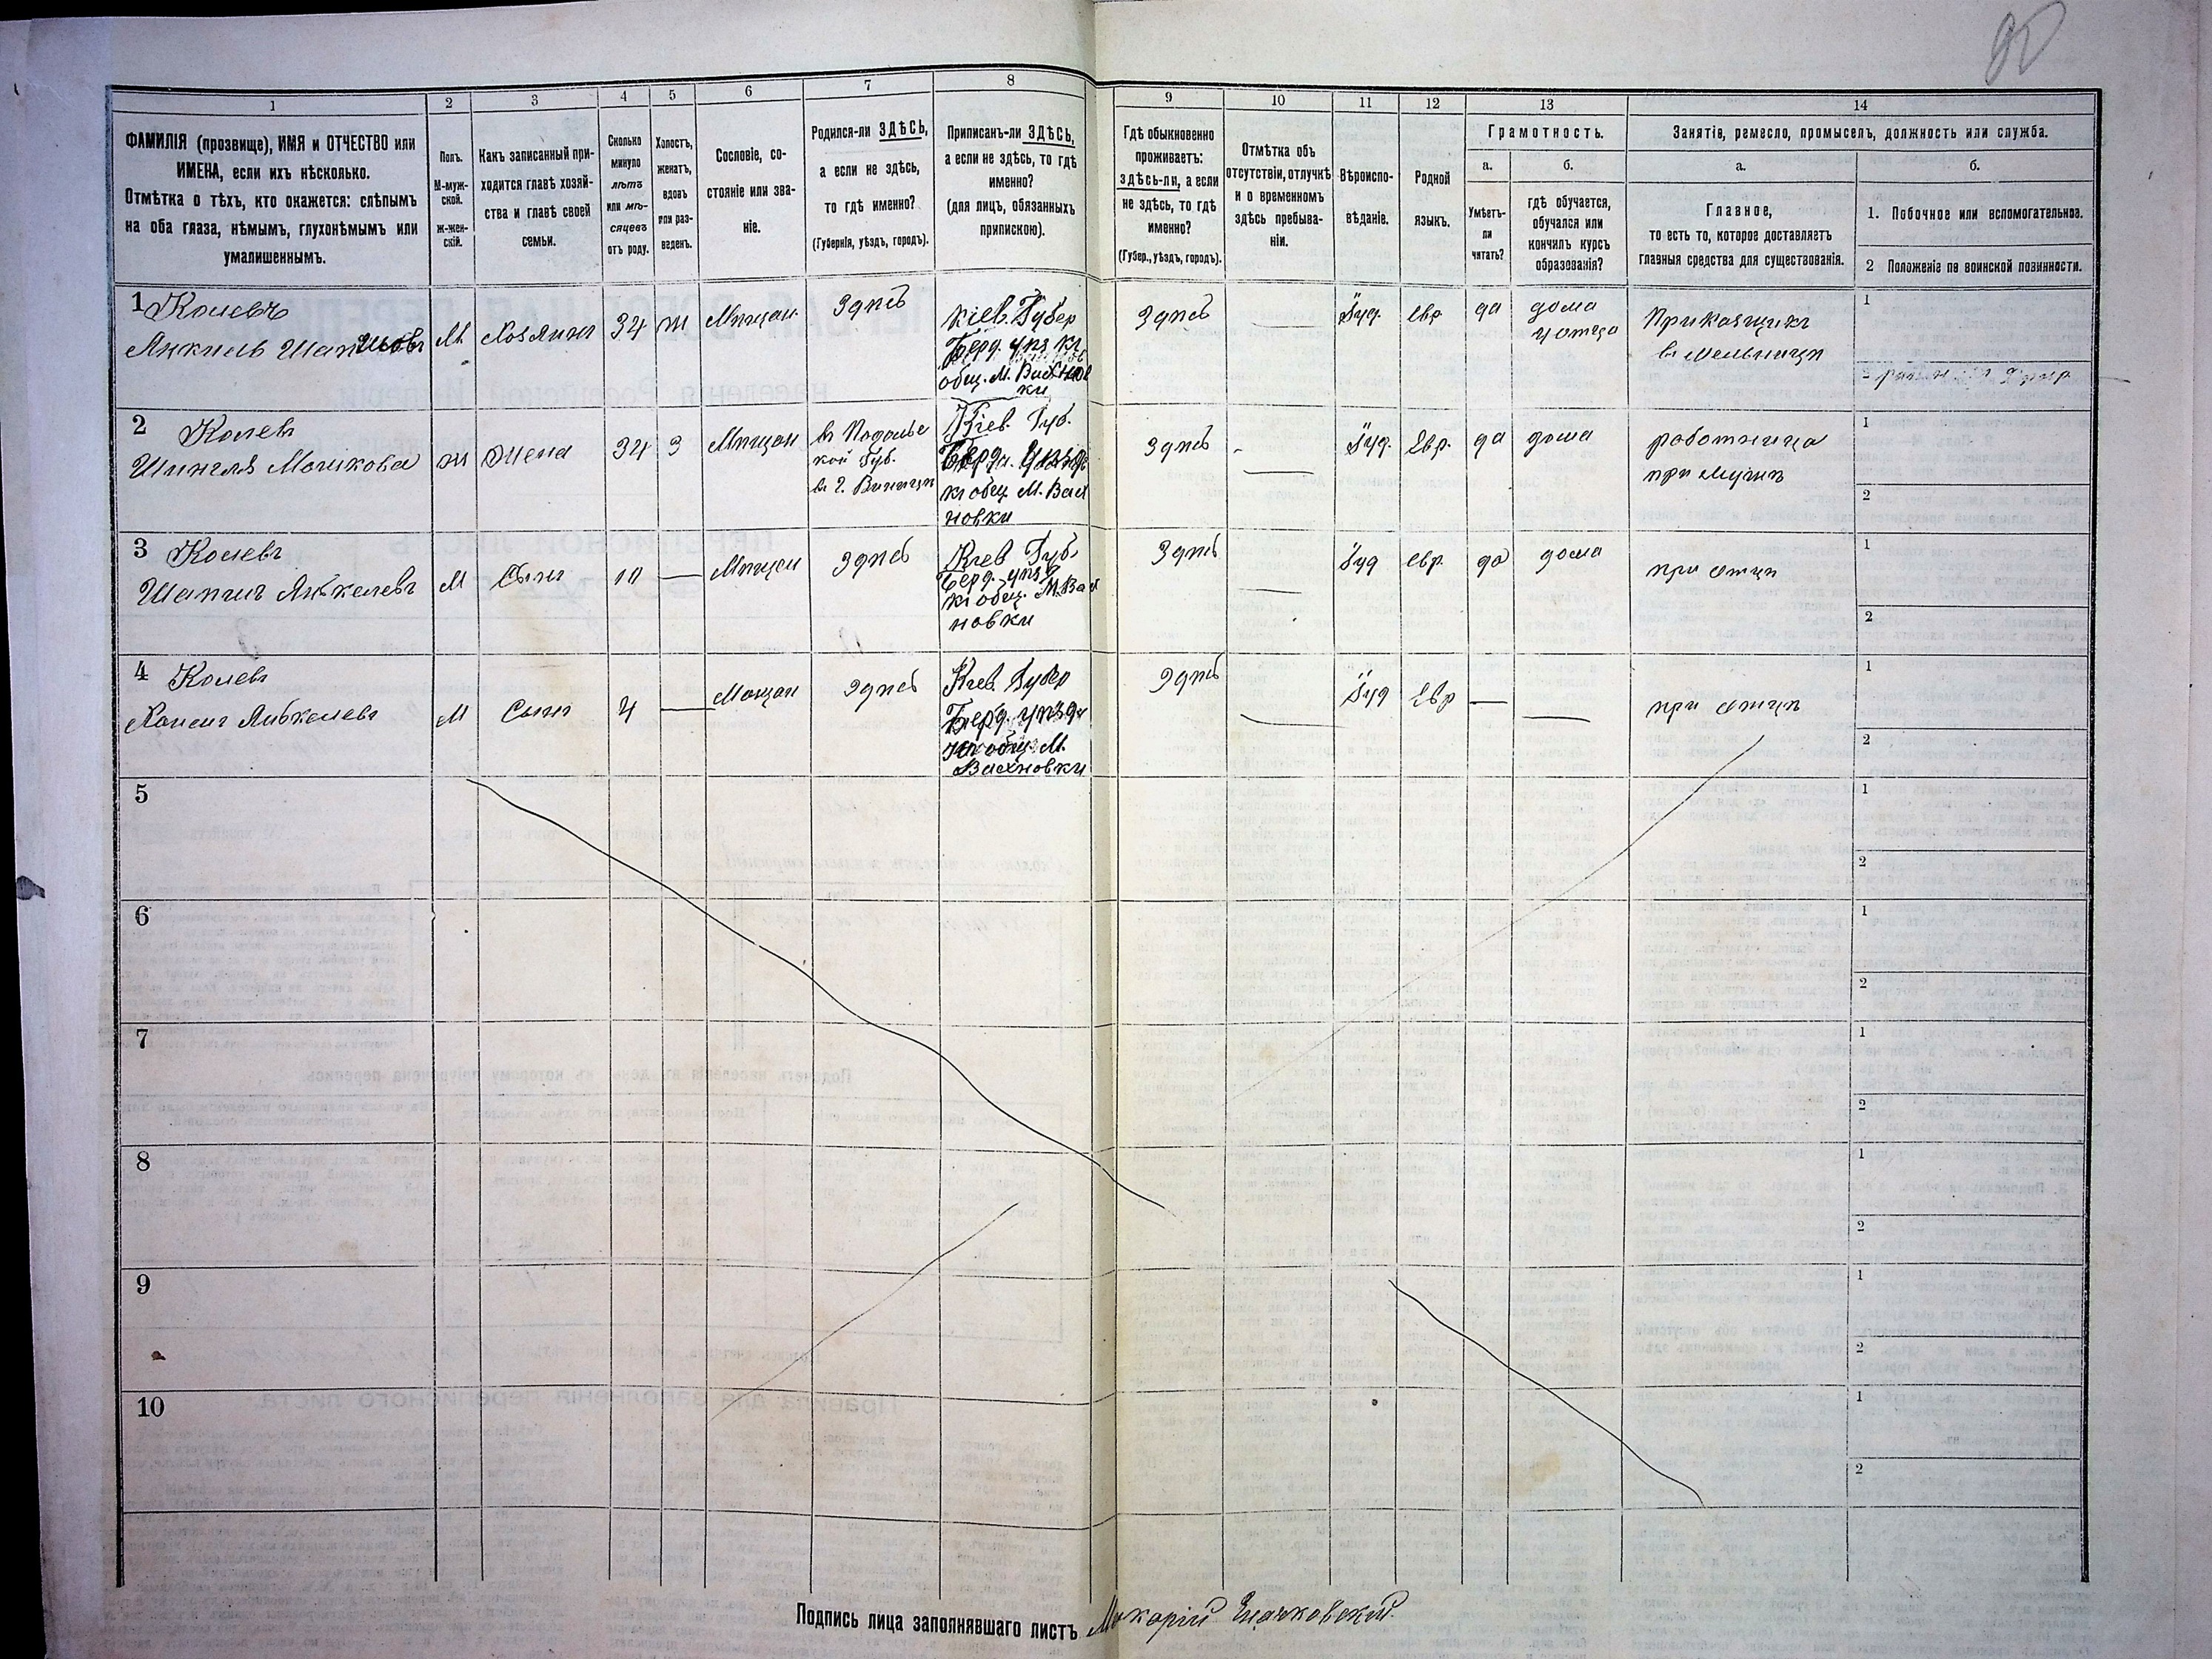 90
1
2
3
4
5
6
7
8
9
10
11
12
13
14
ФАМИЛІЯ (прозвище), ИМЯ и ОТЧЕСТВО или
ИМЕНА, если ихъ нѣсколько.
Отмѣтка о тѣхъ, кто окажется: слѣпымъ
на оба глаза, нѣмымъ, глухонѣмымъ или
умалишеннымъ.
Полъ.
М-муж-
ской.
ж-жен-
скій.
Какъ записанный при-
ходится главѣ хозяй-
ства и главѣ своей
семьи.
Сколько
минуло
лѣтъ
или мѣ-
сяцевъ
отъ роду.
Холостъ,
женатъ,
вдовъ
или раз-
веденъ.
Сословіе, со-
стояніе или зва-
ніе.
Родился-ли ЗДѢСЬ,
а если не здѣсь,
то гдѣ именно?
(Губернія, уѣздъ, городъ).
Приписанъ-ли ЗДѢСЬ,
а если не здѣсь, то гдѣ
именно?
(для лицъ, обязанныхъ
припискою).
Гдѣ обыкновенно
проживаетъ:
здѣсь-ли, а если
не здѣсь, то гдѣ
именно?
(Губер., уѣздъ, городъ).
Отмѣтка объ
отсутствіи, отлучкѣ
и о временномъ
здѣсь пребыва-
ніи.
Вѣроиспо-
вѣданіе.
Родной
языкъ.
Грамотность.
а.
б.
Умѣетъ-
ли
читать?
гдѣ обучается,
обучался или
кончилъ курсъ
образованія?
Занятіе, ремесло, промыселъ, должность или служба.
а.
б.
Главное,
то есть то, которое доставляетъ
главныя средства для существованія.
1. Побочное или вспомогательное.
2 Положеніе по воинской повинности.
1
Янкель
М
Хозяинъ
34
ж
Мѣщан
Здѣсь
Кіев. Губер
Берд. уѣз къ
общ. М. Вахнов
ки
Здѣсь
Іуд.
Евр
да
дома
у отца
Прикащикъ
въ Мельницѣ
1
2
2
Мошкова
ж
Жена
34
З
Мѣщан
въ Подольс
кой Губ.
въ г. Виницѣ
Кіев. Губ.
къ общ. М. Вах
новки
Здѣсь
Іуд.
Евр.
да
дома
работница
при мужѣ
1
2
3
М
Сынъ
Мѣщан
Здѣсь
Кіев Губ.
Берд. уѣз
къ общ. М. Вах
новки
Здѣсь
Іуд
Евр
да
дома
при отцѣ
1
2
4
М
Сынъ
4
Мѣщан
Здѣсь
Кіев Губер
Берд. уѣзда
общ. М.
Вахновки
Здѣсь
Іуд
Евр
при отцѣ
1
2
5
1
2
6
1
2
7
1
2
8
1
2
9
1
2
10
1
2
Подпись лица заполнявшаго листъ Макарій